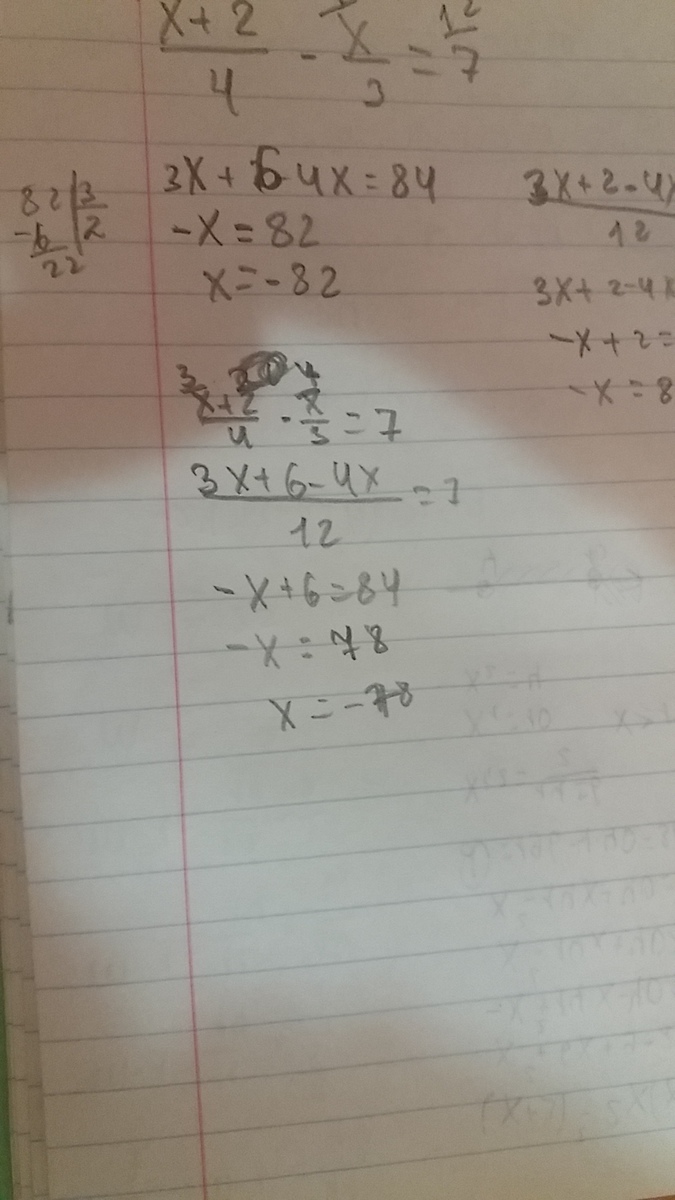 x+2/4 - x/3 = 7
12
3x+6-4x=84
-x=82
x=-82
82|3
-6 2
22
3x+2-4x
12
3x+2-4x
-x+2=
-x=8
3 4
x+2/4 - x/3 = 7
3x+6-4x/12 = 7
-x+6=84
-x=78
x=-78